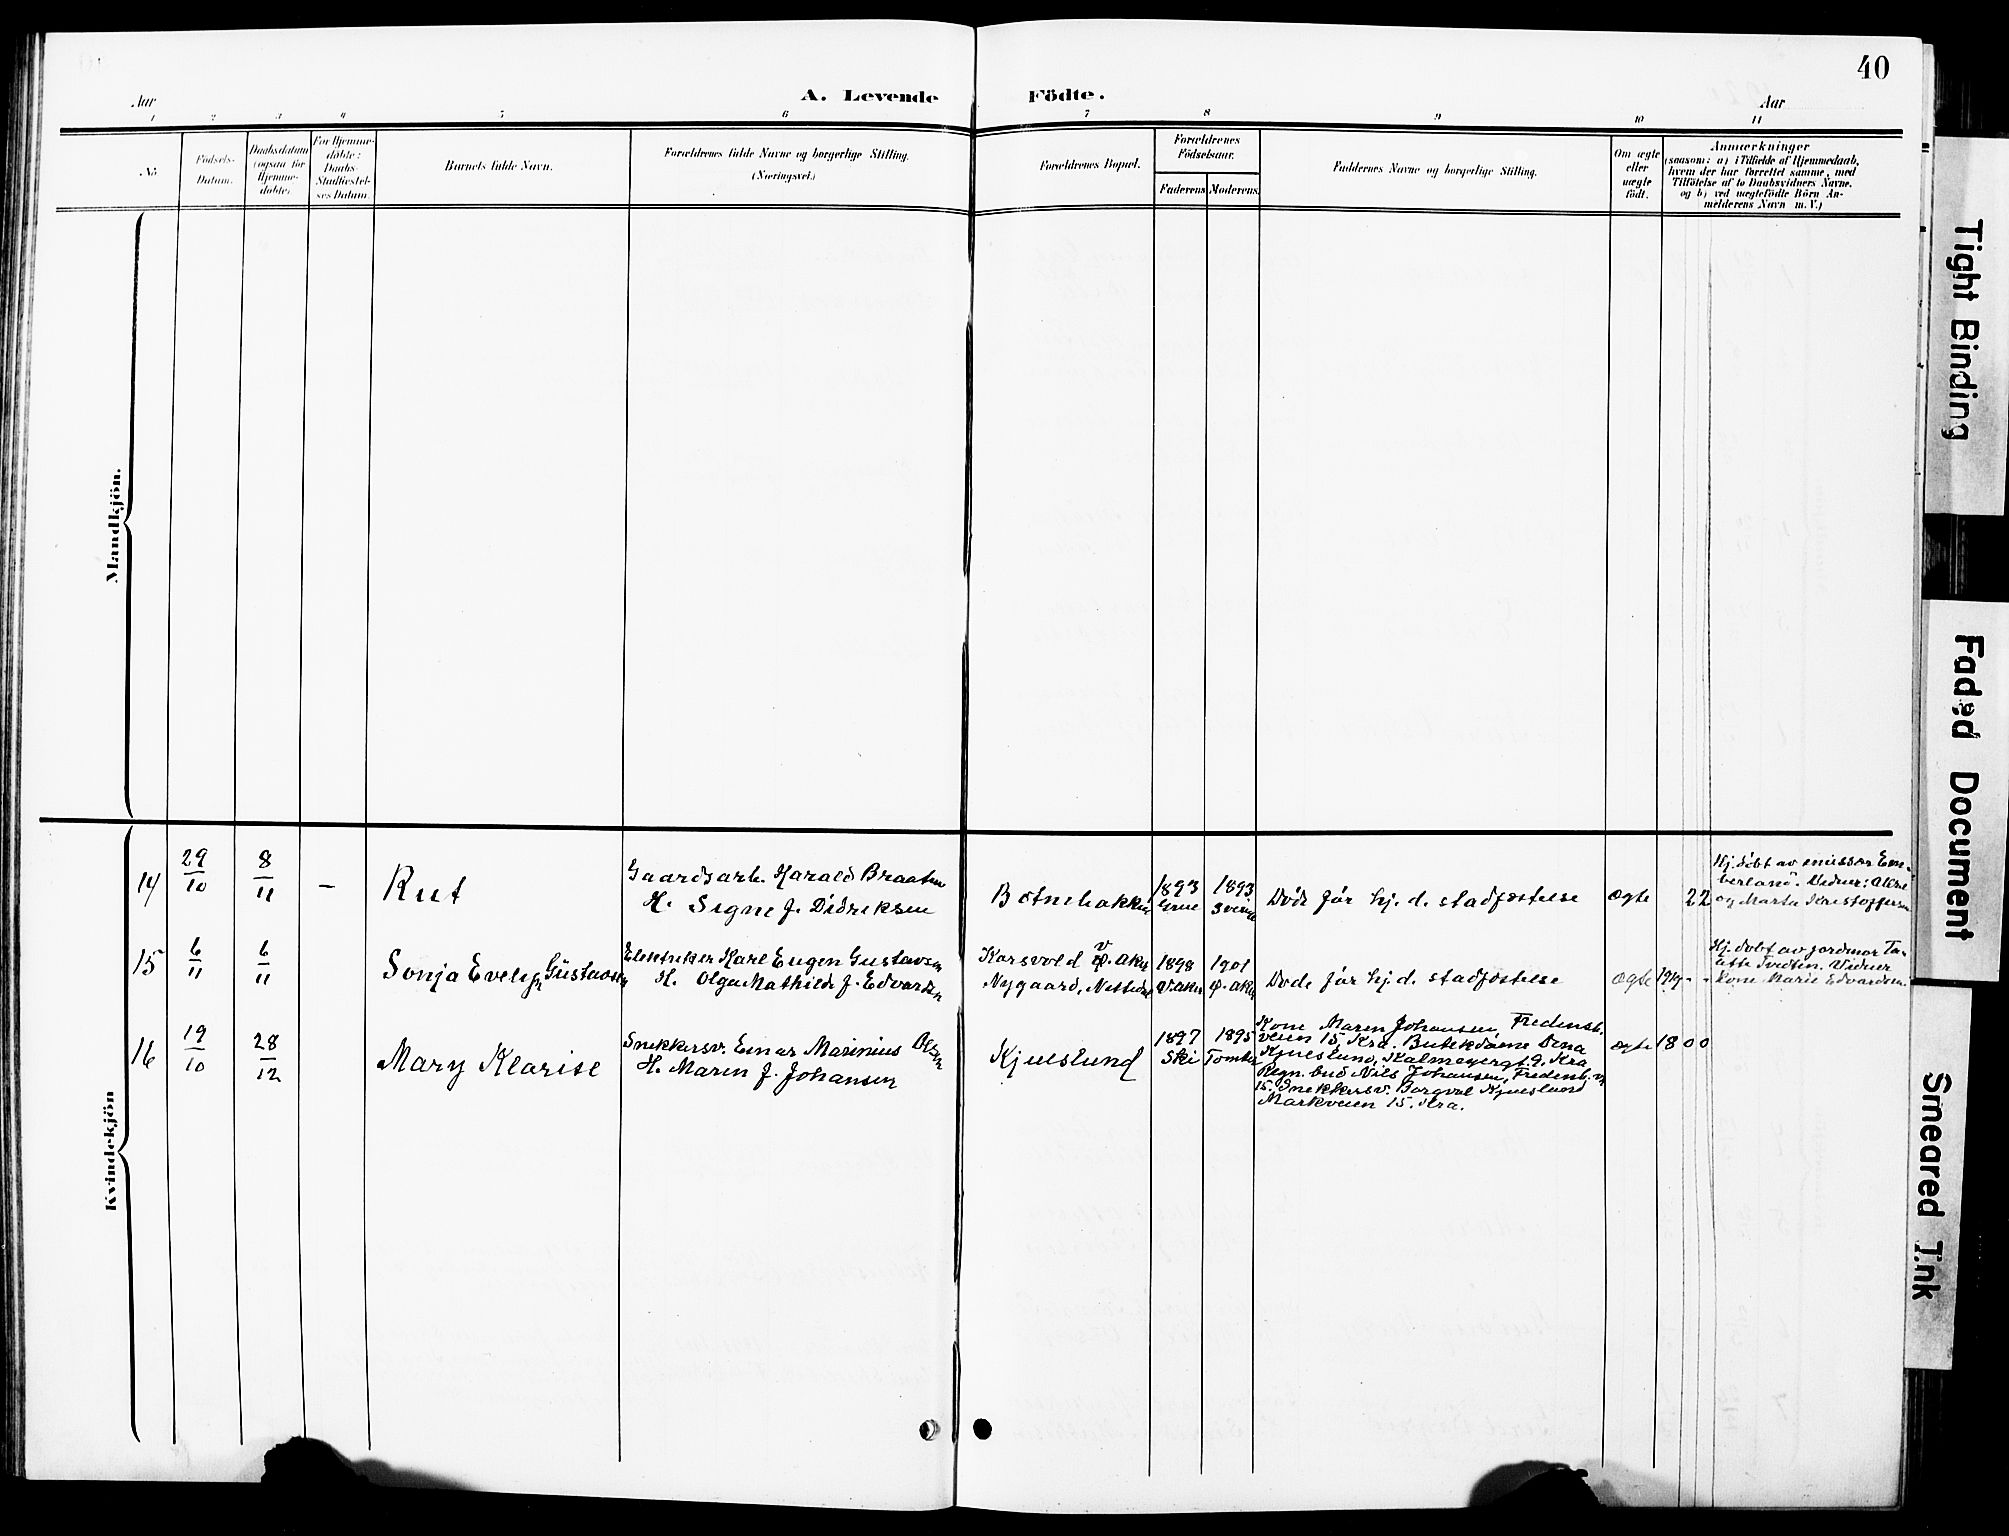 40
Aar
A. Levende Födte.
Aar
1 2 3 4 5 6 7 8 9 10 11
No
Födsels-
Datum.
Daabsdatum
(ogsaa for
Hjemme-
döbte)
For Hjemme-
döbte:
Daabs-
Stadfæstel-
ses Datum
Barnets fulde Navn.
Forældrenes fulde Navne og borgerlige Stilling.
(Næringsvei.)
Forældrenes Bopæl.
Forældrenes
Födselsaar.
Faderens Moderens
Faddernes Navne og borgerlige Stilling.
Om ægte
eller
uægte
födt.
Anmærkninger
(saasom: a) i Tilfælde af Hjemmedaab,
hvem der har forrettet samme, med
Tilföielse af to Daabsvidners Navne.
og b) ved uægtefödte Börn An-
melderens Navn m. V.)
Mandkjön.
Kvindekjön
14 29/10 8/11 – Rut
Gaardsarb. Harald Braaten
H. Signe f. Didriksen
Botnebakken
1893 Grue
1893 Sverige
Døde før hj. d. stadfæstelse
ægte 22
Hj. døbt av emissær
og Marta Kristoffersen
15 6/11 6/11 Sonja Evelyn Gustavsen
Elektriker Karl Eugen Gustavsen
H. Olga Mathilde f. Edvardsen
Korsvold V. Aker
Nygaard, Nittedal
1898 V. Aker
1901 Ø. Aker
Døde før hj. d. stadfæstelse
ægte 1919 - -
Hj. døbt av jordmor
Tvedten. Vidner
Kone Marie Edvardsen.
16 19/10 28/12 Mary Klarise
Snekkersv. Einar Marinius Olsen
H. Maren f. Johansen
Kjueslund
1897 Ski
1895 Tomter
Kone Maren Johansen, Fredensb.
veien 15, Kra. Butikdame Dina
Kjueslund, Kalmeyergt. 9, Kra
Regn. bud Nils Johansen, Fredensb. v.
15. Snekkersv. Borgval Kjueslund
Markveien 15. Kra.
ægte 18 0 0
Tight Binding
Faded Document
Smeared Ink